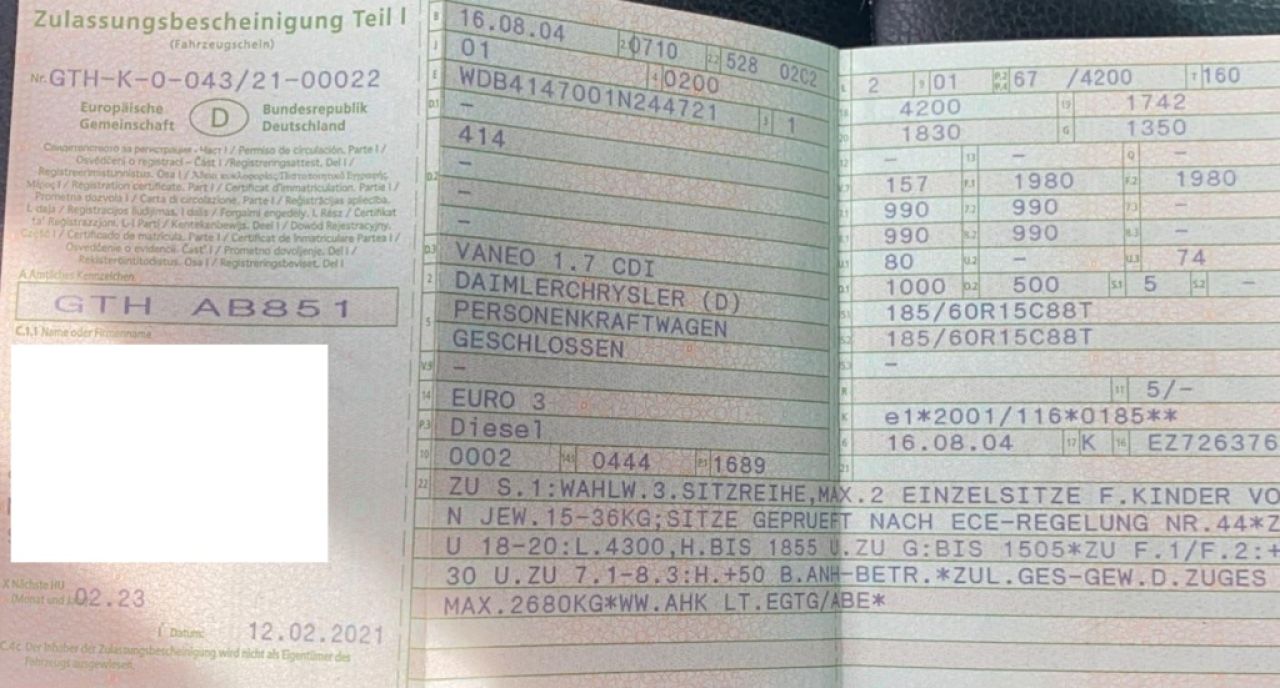 Zulassungsbescheinigung Teil I
(Fahrzeugschein)
Nr. GTH-K-0-043/21-00022
Europäische Gemeinschaft
D
Bundesrepublik Deutschland
Permiso de circulación. Parte I /
Osvědčení o registraci – Část I / Registreringsattest. Del I /
Registreerimistunnistus. Osa I /
Registration certificate. Part I / Certificat d'immatriculation. Partie I /
Prometna dozvola I / Carta di circolazione. Parte I / Reģistrācijas apliecība.
I. daļa / Registracijos liudijimas. I dalis / Forgalmi engedély. I. Rész / Ċertifikat
ta' Reġistrazzjoni. L-I Parti / Kentekenbewijs. Deel I / Dowód Rejestracyjny.
Część I / Certificado de matrícula. Parte I / Certificat de înmatriculare Partea I /
Osvedčenie o evidencii. Časť I / Prometno dovoljenje. Del I /
Rekisteröintitodistus. Osa I / Registreringsbeviset. Del I
A Amtliches Kennzeichen
GTH AB851
C.1.1 Name oder Firmenname
X Nächste HU
(Monat und 02.23
I Datum: 12.02.2021
C.4c Der Inhaber der Zulassungsbescheinigung wird nicht als Eigentümer des
Fahrzeugs ausgewiesen.
B 16.08.04 2.1 0710 2.2 528 02C2
J 01 4 0200
E WDB4147001N244721 3 1
D.1 -
414
D.2 -
-
-
D.3 VANEO 1.7 CDI
2 DAIMLERCHRYSLER (D)
5 PERSONENKRAFTWAGEN
GESCHLOSSEN
V.9 -
14 EURO 3
P.3 Diesel
10 0002 14.1 0444 P.1 1689
22 ZU S.1:WAHLW.3.SITZREIHE,MAX.2 EINZELSITZE F.KINDER VO
N JEW.15-36KG;SITZE GEPRUEFT NACH ECE-REGELUNG NR.44*Z
U 18-20:L.4300,H.BIS 1855 U.ZU G:BIS 1505*ZU F.1/F.2:+
30 U.ZU 7.1-8.3:H.+50 B.ANH-BETR.*ZUL.GES-GEW.D.ZUGES
MAX.2680KG*WW.AHK LT.EGTG/ABE*
L 2 9 01 P.2 P.4 67 /4200 T 160
18 4200 19 1742
20 1830 G 1350
12 - 13 - Q -
V.7 157 F.1 1980 F.2 1980
7.1 990 7.2 990 7.3 -
8.1 990 8.2 990 8.3 -
U.1 80 U.2 - U.3 74
O.1 1000 O.2 500 S.1 5 S.2 -
15.1 185/60R15C88T
15.2 185/60R15C88T
15.3 -
R 11 5/-
K e1*2001/116*0185**
6 16.08.04 17 K 16 EZ726376
21